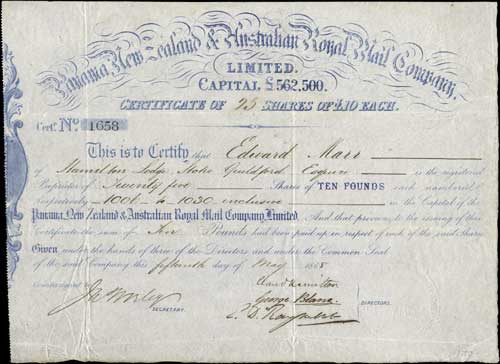 Panama, New Zealand & Australian Royal Mail Company,
LIMITED.
CAPITAL £562,500.
CERTIFICATE OF 25 SHARES OF £10 EACH.
Cert. No. 1658
This is to Certify that Edward Marr
of Hamilton Lodge Stoke Guildford Esquire is the registered
Proprietor of Twenty five Shares of TEN POUNDS each numbered
respectively 1006 to 1030 inclusive in the Capital of the
Panama, New Zealand & Australian Royal Mail Company, Limited. And that previous to the issuing of this
Certificate the sum of Pounds had been paid up in respect of each of the said Shares
Given under the hands of three of the Directors and under the Common Seal
of the said Company this fifteenth day of May
Countersigned
SECRETARY.
Hamilton
George
DIRECTORS.